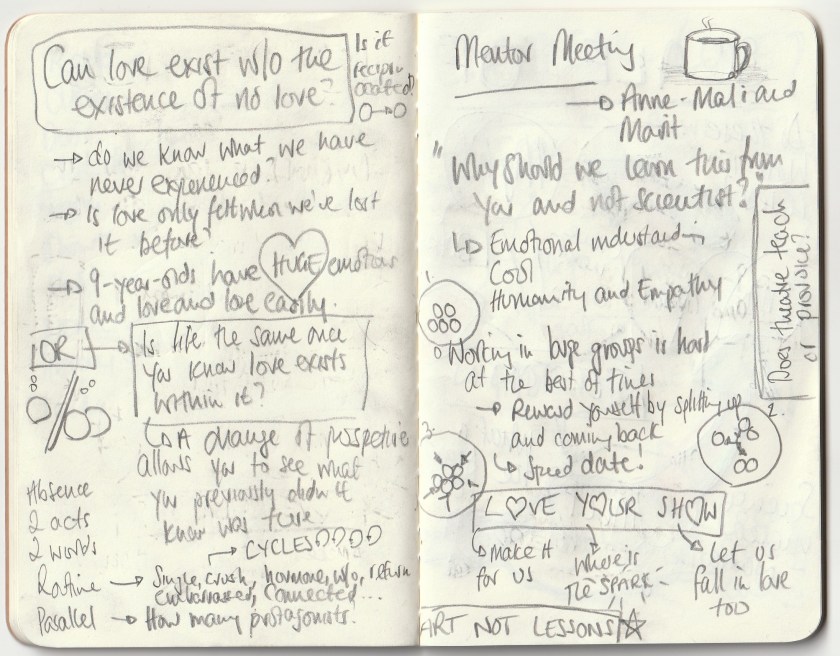 Can love exist w/o the
existence of no love?
Is it
recipro-
cated?
do we know what we have
never experienced?
Is love only felt when we've lost
it before?
9-year-olds have HUGE emotions
and love and love easily.
OR
Is life the same once
you know love exists
within it?
A change of perspective
allows you to see what
you previously didn't
know was there
CYCLES
Absence
2 acts
2 worlds
Routine → Single, crush, hormone, w/o, return
embarrassed, connected...
Parallel → How many protagonists.
Mentor Meeting
Anne-Mali and
Marit
"Why should we learn this from
you and not scientist?"
Emotional understanding
Cool
Humanity and Empathy
Does theatre teach
or provoke?
1.
Working in large groups is hard
at the best of times
Reward yourself by splitting up
and coming back
Speed date!
2.
3.
L♡VE Y♡UR SH♡W
Make it
for us
Where's
the SPARK
Let us
fall in love
too
ART NOT LESSONS